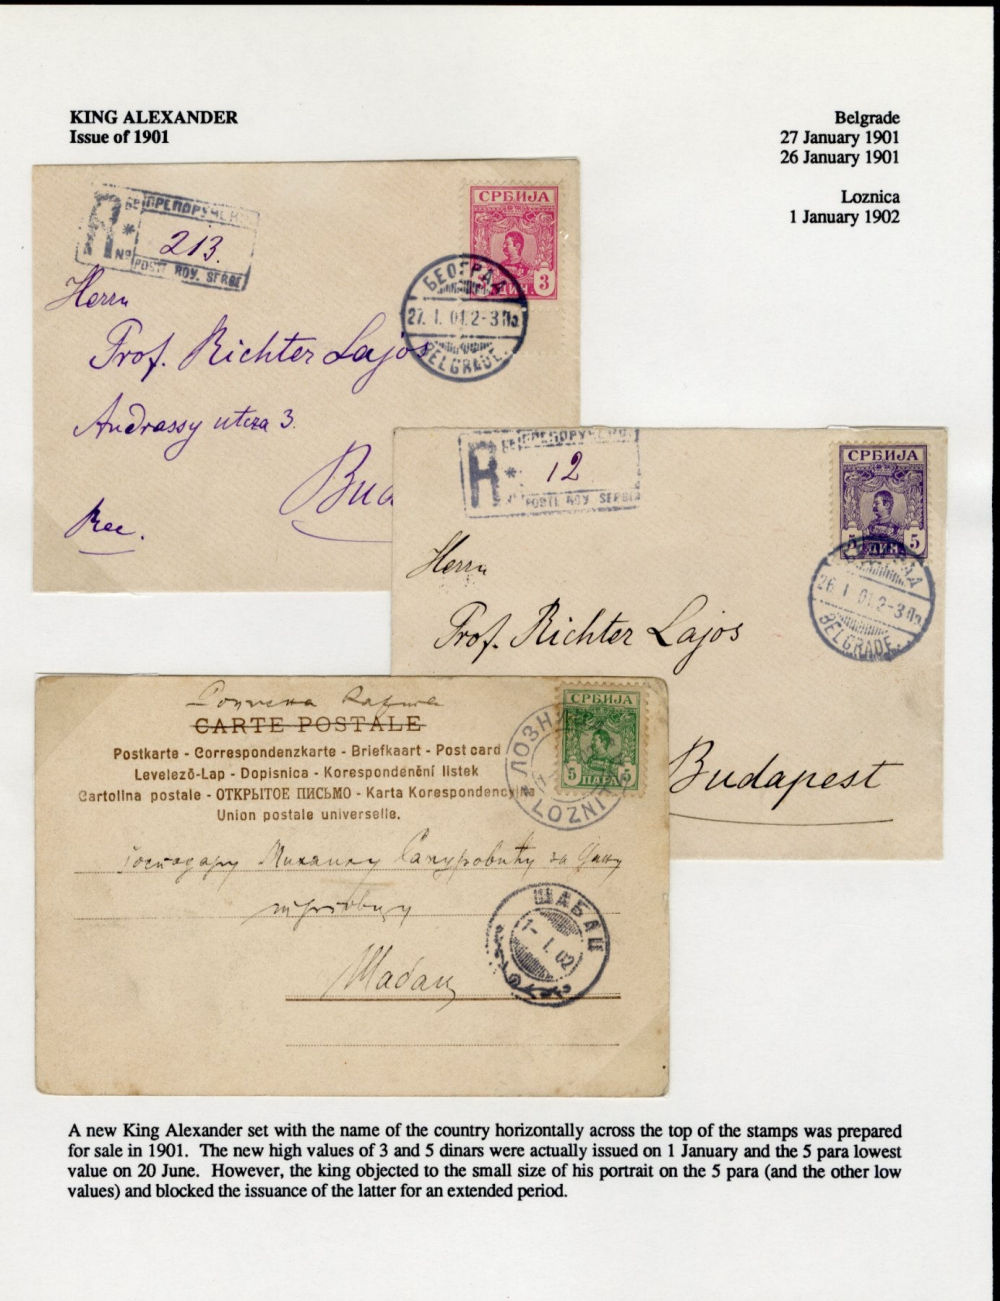 KING ALEXANDER
Issue of 1901
Belgrade
27 January 1901
26 January 1901
Loznica
1 January 1902
R
№
213.
POSTE ROY. SERBE
СРБИЈА
3
ДИН
БЕОГРАД
27. I. 01. 2-3 Пп.
BELGRADE.
Herrn
Prof. Richter Lajos
Andrassy utcza 3.
Rec.
R
12
POSTE ROY SERBE
СРБИЈА
5 ДИН 5
26. I. 01. 2-3 Пп.
BELGRADE.
Herrn
Prof. Richter Lajos
Budapest
CARTE POSTALE
Postkarte - Correspondenzkarte - Briefkaart - Post card
Levelező-Lap - Dopisnica - Korespondenční listek
Cartolina postale - ОТКРЫТОЕ ПИСЬМО - Karta Korespondencyjna
Union postale universelle.
СРБИЈА
5 ПАРА 5
Господару
Шабац
ШАБАЦ
1- I. 02
A new King Alexander set with the name of the country horizontally across the top of the stamps was prepared
for sale in 1901. The new high values of 3 and 5 dinars were actually issued on 1 January and the 5 para lowest
value on 20 June. However, the king objected to the small size of his portrait on the 5 para (and the other low
values) and blocked the issuance of the latter for an extended period.